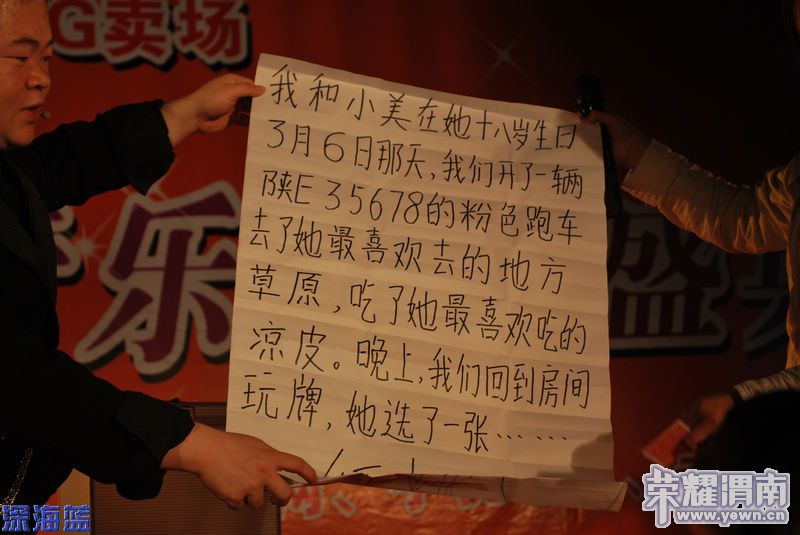 G卖场
我和小美在她十八岁生日
3月6日那天,我们开了一辆
陕E 35678的粉色跑车
去了她最喜欢去的地方
草原,吃了她最喜欢吃的
凉皮。晚上,我们回到房间
玩牌,她选了一张……
乐
盛典
深海蓝
荣耀渭南
www.yewn.cn